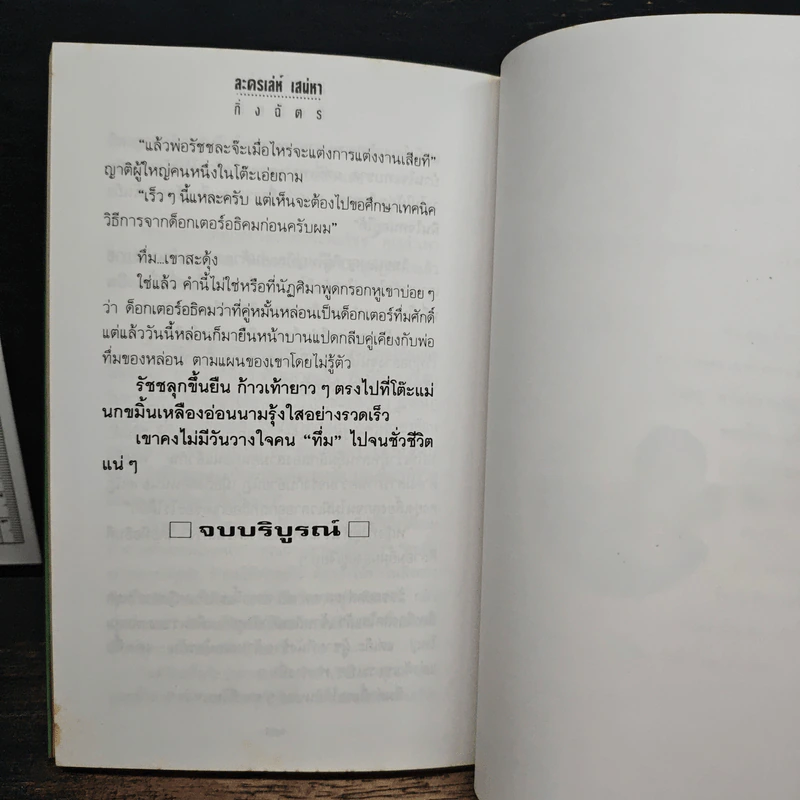 ละครเล่ห์ เสน่หา
กิ่งฉัตร
“แล้วพ่อรัชชละจ๊ะเมื่อไหร่จะแต่งการแต่งงานเสียที”
ญาติผู้ใหญ่คนหนึ่งในโต๊ะเอ่ยถาม
“เร็ว ๆ นี้แหละครับ แต่เห็นจะต้องไปขอศึกษาเทคนิค
วิธีการจากด็อกเตอร์อธิคมก่อนครับผม”
ทึ่ม...เขาสะดุ้ง
ใช่แล้ว คำนี้ไม่ใช่หรือที่นัฏศิมาพูดกรอกหูเขาบ่อย ๆ
ว่า ด็อกเตอร์อธิคมว่าที่คู่หมั้นหล่อนเป็นด็อกเตอร์ที่มศักดิ์
แต่แล้ววันนี้หล่อนก็มายืนหน้าบานแปดกลีบคู่เคียงกับพ่อ
ทึ่มของหล่อน ตามแผนของเขาโดยไม่รู้ตัว
รัชชลุกขึ้นยืน ก้าวเท้ายาว ๆ ตรงไปที่โต๊ะแม่
นกขมิ้นเหลืองอ่อนนามรุ้งใสอย่างรวดเร็ว
เขาคงไม่มีวันวางใจคน “ทึ่ม” ไปจนชั่วชีวิต
แน่ ๆ
จบบริบูรณ์